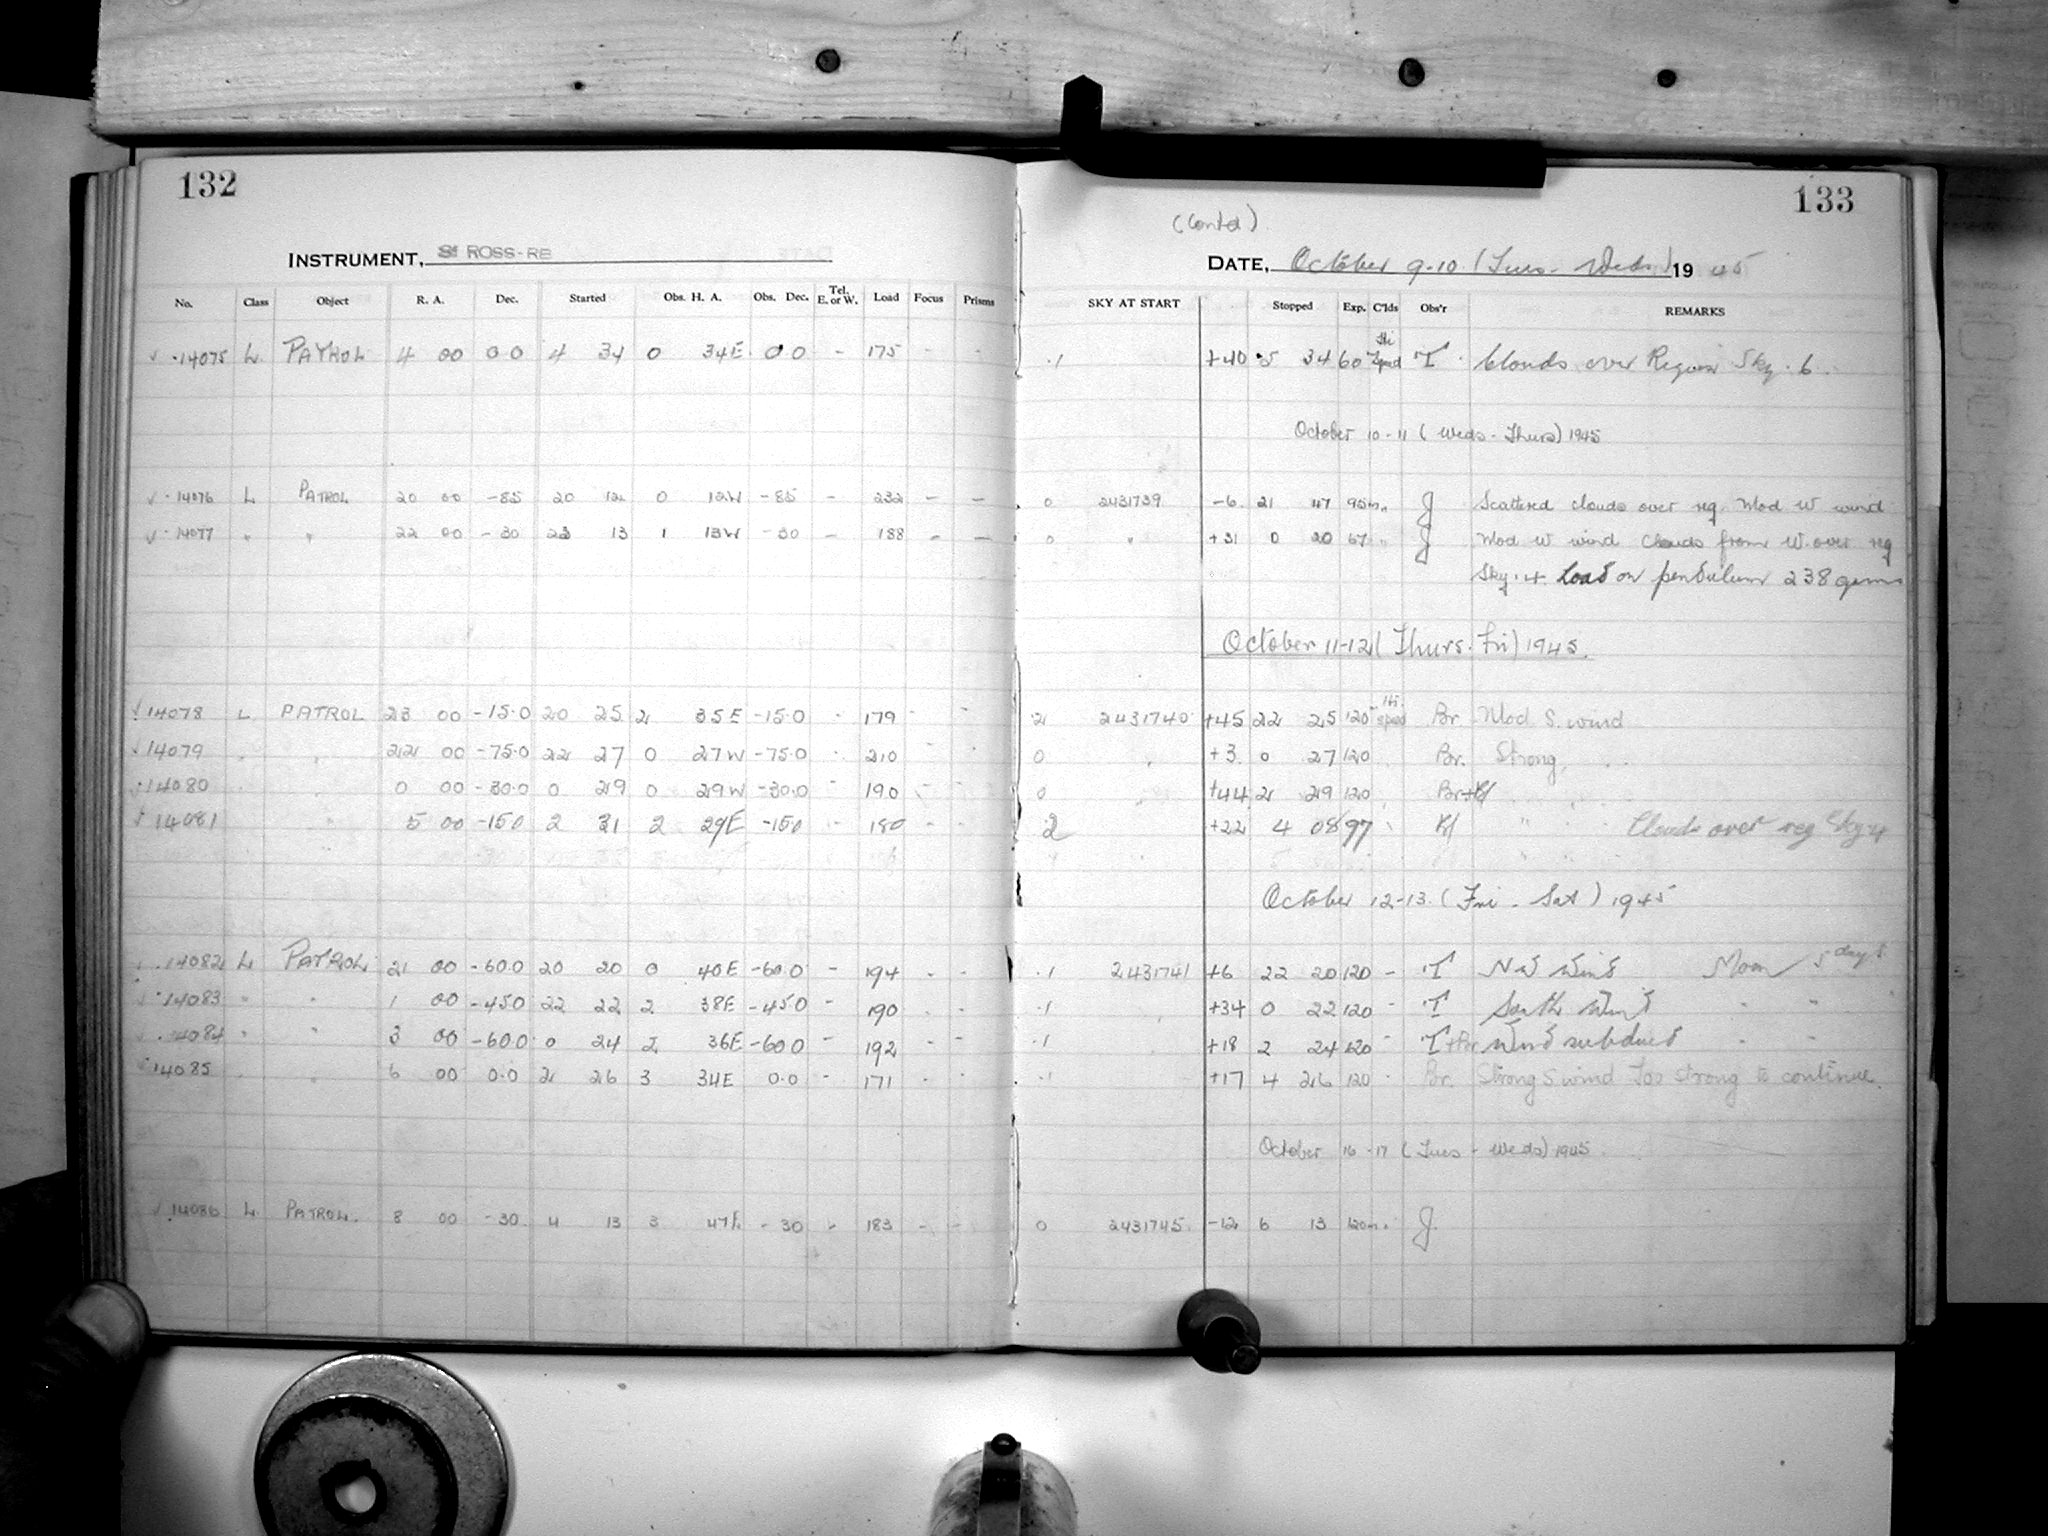 132
133
(Contd)
INSTRUMENT, ROSS-RB
DATE, October 9-10 (Tues - Weds) 1945
No. Class Object R. A. Dec. Started Obs. H. A. Obs. Dec. Tel. E. or W. Load Focus Prisms SKY AT START Stopped Exp. C'lds Obs'r REMARKS
14075 L PATROL 4 00 0.0 4 34 0 34E 0.0 - 175 - - .1 +40 5 34 60 T Clouds over Region Sky .6
October 10-11 (Weds - Thurs) 1945
14076 L PATROL 20 00 -85 20 12 0 12W -85 - 232 - - 0 2431739 -6 21 47 95m. J Scattered clouds over reg. Mod W wind
14077 " " 22 00 -30 23 13 1 13W -30 - 188 - - 0 " +31 0 20 67 " J Mod W wind Clouds from W. over reg
Sky .4 Load on pendulum 238 gms
October 11-12 (Thurs. Fri) 1945.
14078 L PATROL 23 00 -15.0 20 25 2 35E -15.0 - 179 - - .2 2431740 +45 22 25 120 Br. Mod S. wind
14079 " " 22 00 -75.0 22 27 0 27W -75.0 - 210 - - 0 " +3 0 27 120 " Br. Strong " "
14080 " " 0 00 -30.0 0 29 0 29W -30.0 - 190 - - 0 " +44 2 29 120 " " "
14081 " 5 00 -150 2 31 2 29E -150 - 180 - - 2 +22 4 08 97 " " " Clouds over reg Sky 4
October 12-13 (Fri - Sat) 1945
14082 L PATROL 21 00 -60.0 20 20 0 40E -60.0 - 194 - - .1 2431741 +6 22 20 120 - T NW Wind Moon 5 days
14083 " " 1 00 -45.0 22 22 2 38E -45.0 - 190 - - .1 " +34 0 22 120 - T South Wind " "
14084 " " 3 00 -60.0 0 24 2 36E -60.0 - 192 - - .1 " +18 2 24 120 - T+Br Wind subdued " "
14085 " " 6 00 0.0 2 26 3 34E 0.0 - 171 - - .1 +17 4 26 120 - Br. Strong S wind Too strong to continue.
October 16-17 (Tues - Weds) 1945
14086 L PATROL. 8 00 -30 4 13 3 47E -30 - 183 - - 0 2431745 -12 6 13 120m. J.